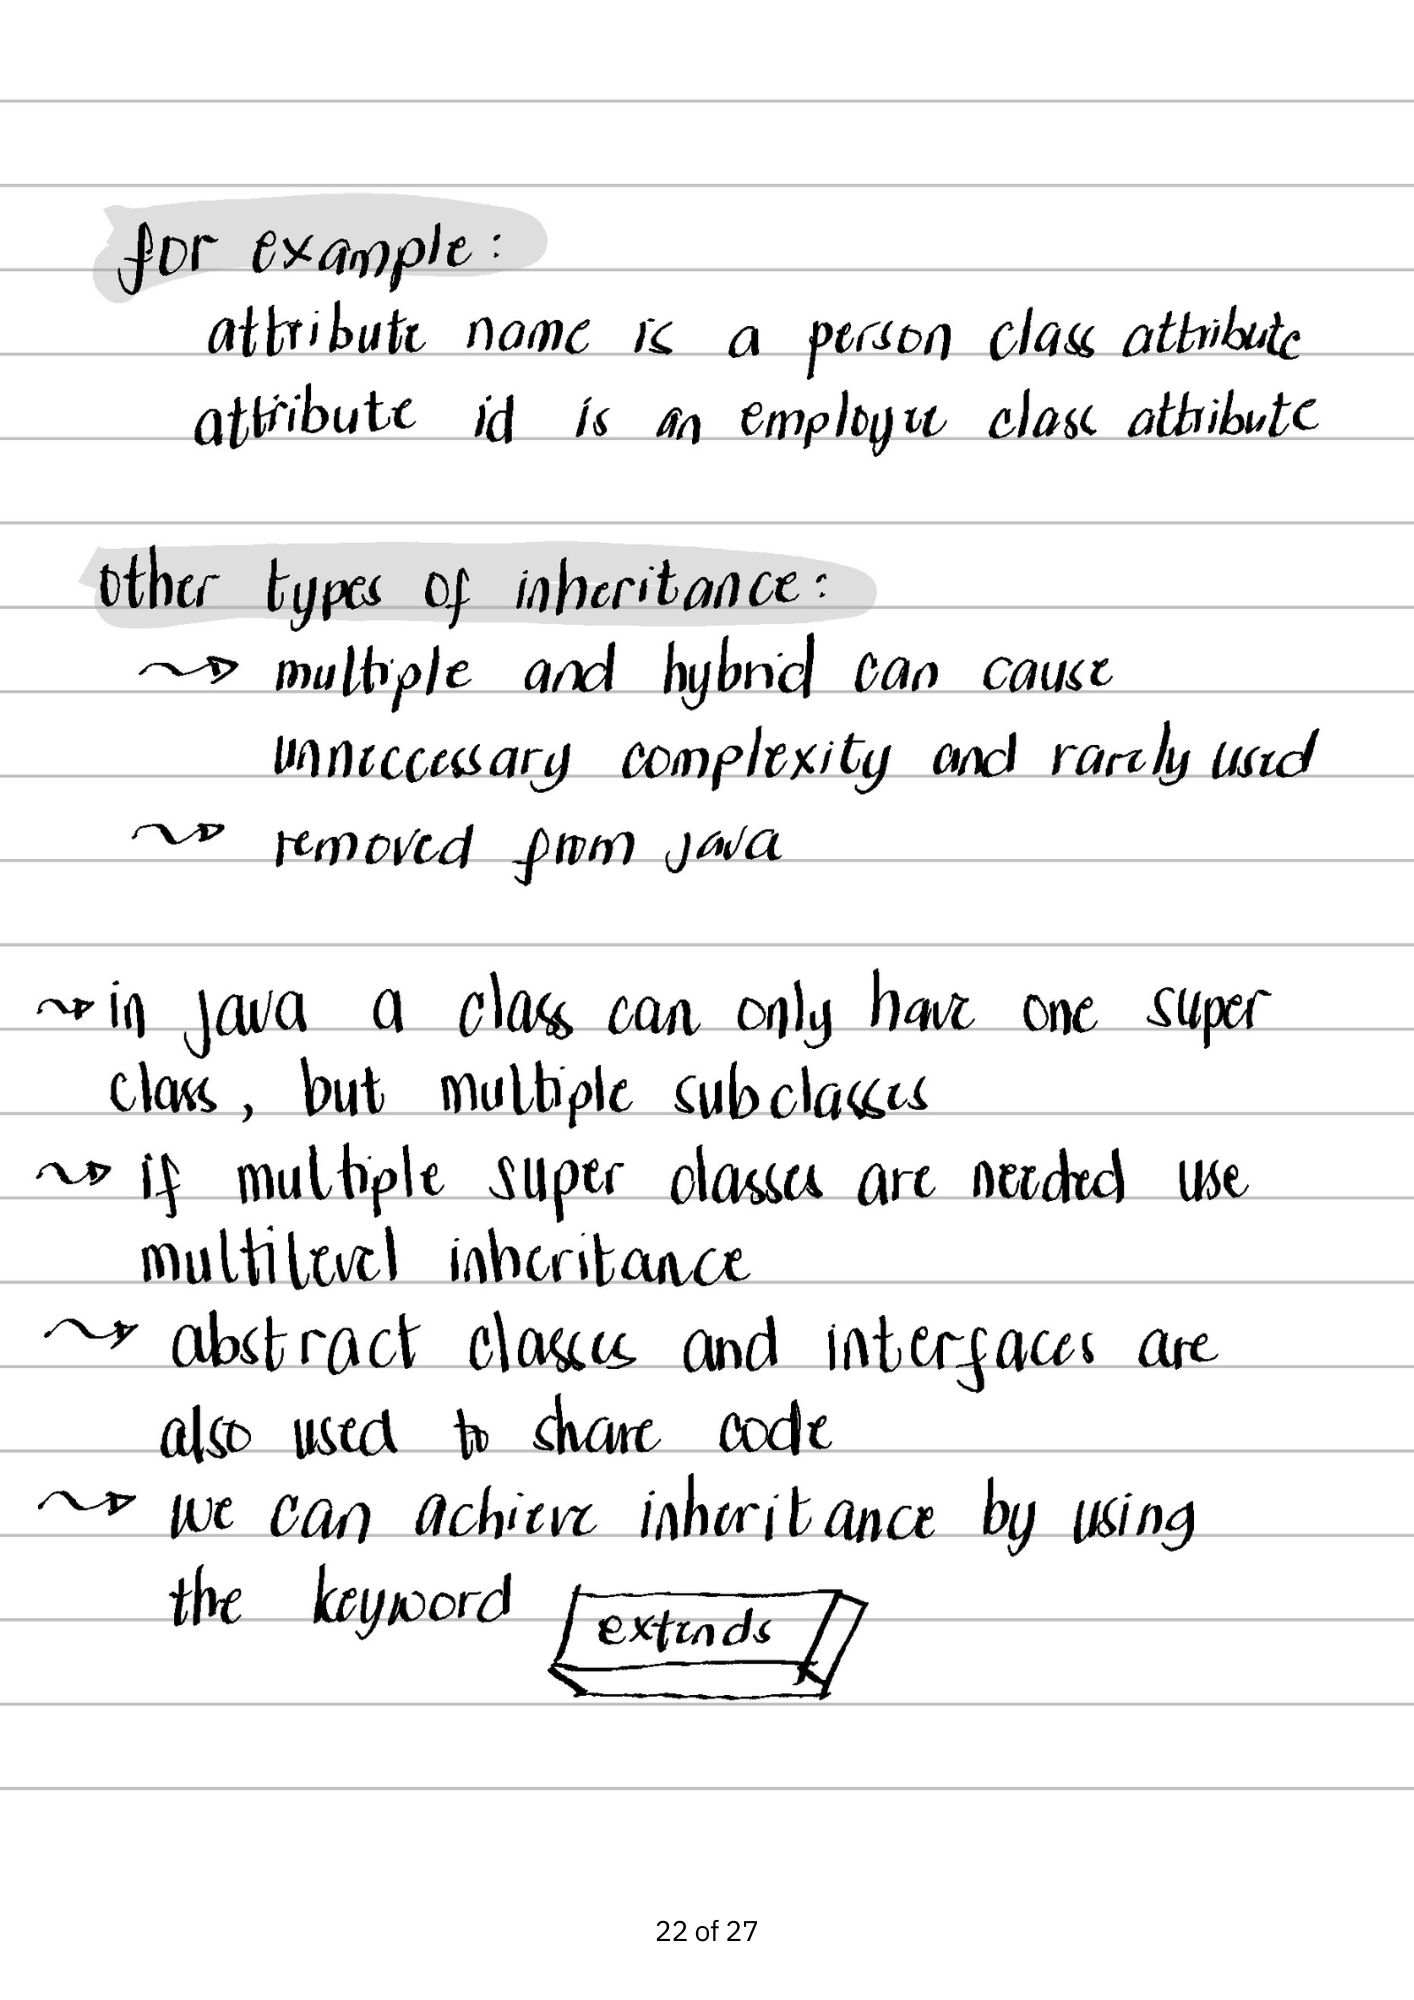 for example:
attribute name is a person class attribute
attribute id is an employee class attribute
other types of inheritance:
multiple and hybrid can cause
unneccessary complexity and rarely used
removed from java
in java a class can only have one super
class, but multiple subclasses
if multiple super classes are needed use
multilevel inheritance
abstract classes and interfaces are
also used to share code
we can achieve inheritance by using
the keyword extends
22 of 27